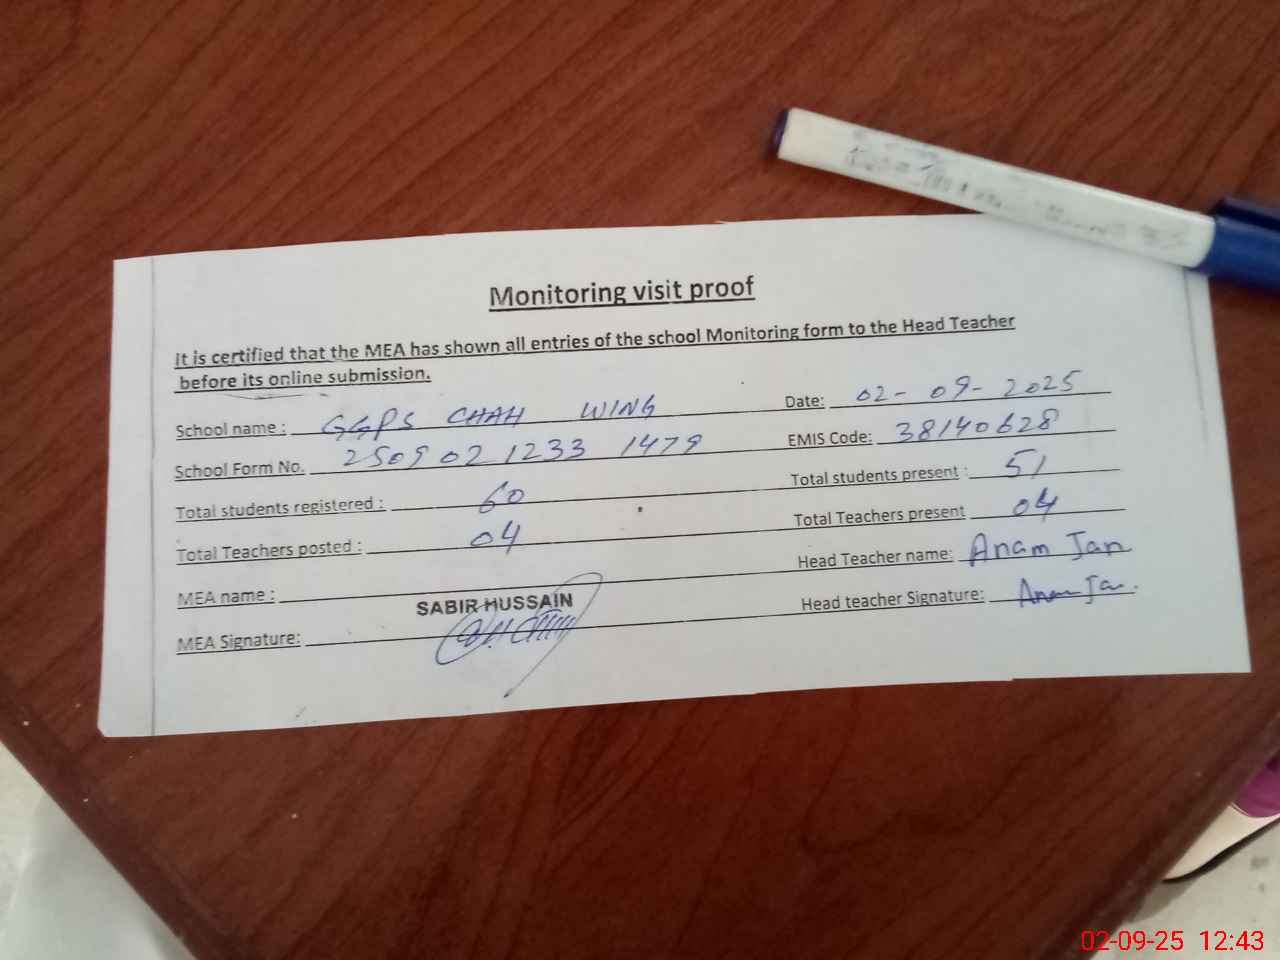 Monitoring visit proof
It is certified that the MEA has shown all entries of the school Monitoring form to the Head Teacher
before its online submission.
School name : GGPS CHAH WING Date: 02-09-2025
School Form No. 250902 1233 1479 EMIS Code: 38140628
Total students registered : 60 Total students present : 51
Total Teachers posted : 04 Total Teachers present 04
MEA name : SABIR HUSSAIN Head Teacher name: Anam Jan
MEA Signature: Head teacher Signature: Anam Jan.
02-09-25 12:43